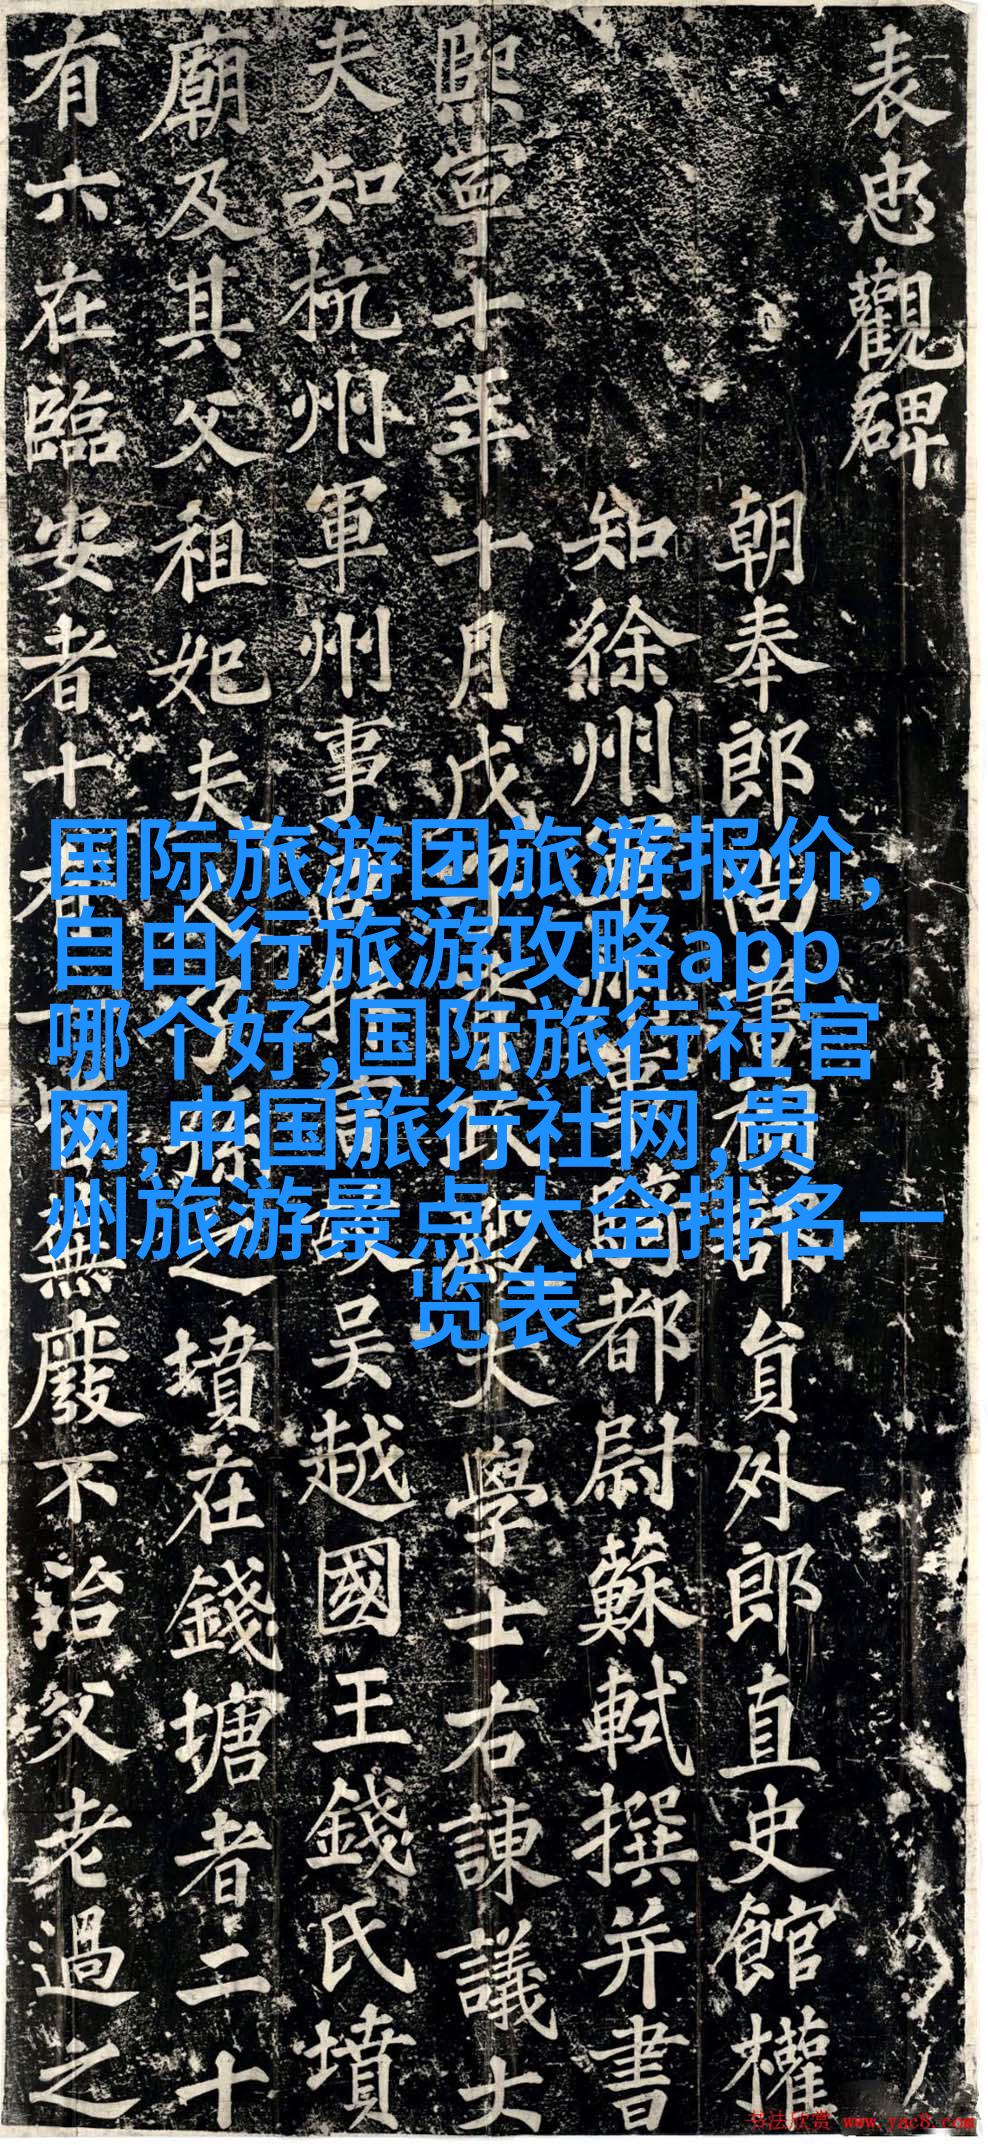 表忠觀碑
朝奉郎尚書祠部員外郎直史館權
知徐州軍州事騎都尉蘇軾撰并書
熙寧十年十月戊子資政殿大學士右諫議大
夫知杭州軍州事臣抃言故吳越國王錢氏墳
廟及其父祖妃夫人子孫之墳在錢塘者二十
有六在臨安者十有一皆蕪廢不治父老過之
国际旅游团旅游报价,
自由行旅游攻略app
哪个好,国际旅行社官
网,中国旅行社网,贵
州旅游景点大全排名一
览表
书法欣赏 www.yac8.com